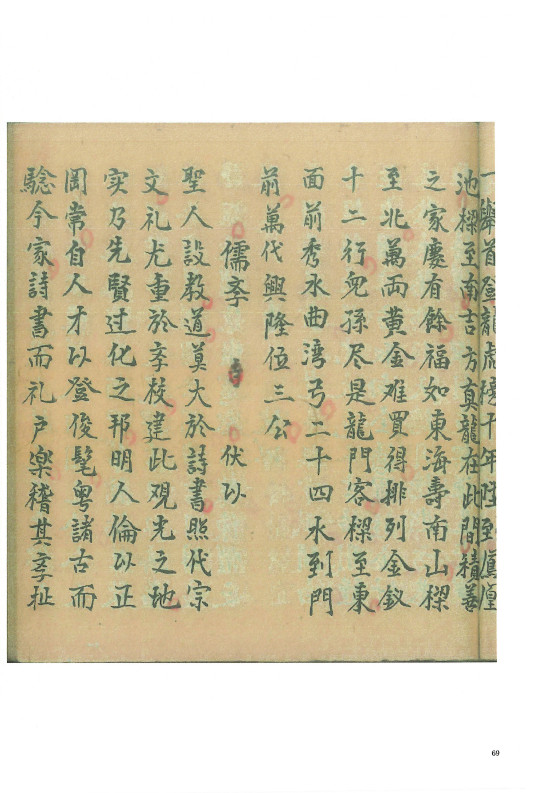 一舉首登龍虎榜十年身到鳳凰
池樑至南吉方真龍在此間積善
之家慶有餘福如東海壽南山樑
至北萬両黃金难買得排列金釵
十二行兒孫尽是龍門客樑至東
面前秀水曲湾弓二十四水到門
前萬代興隆位三公
儒孛 伏以
聖人設教道莫大於詩書照代宗
文礼尤重於孛校建此观光之地
实乃先賢过化之邦明人倫以正
岡常自人才以登俊髦粤諸古而
騐今家詩書而礼户樂稽其孛址
69